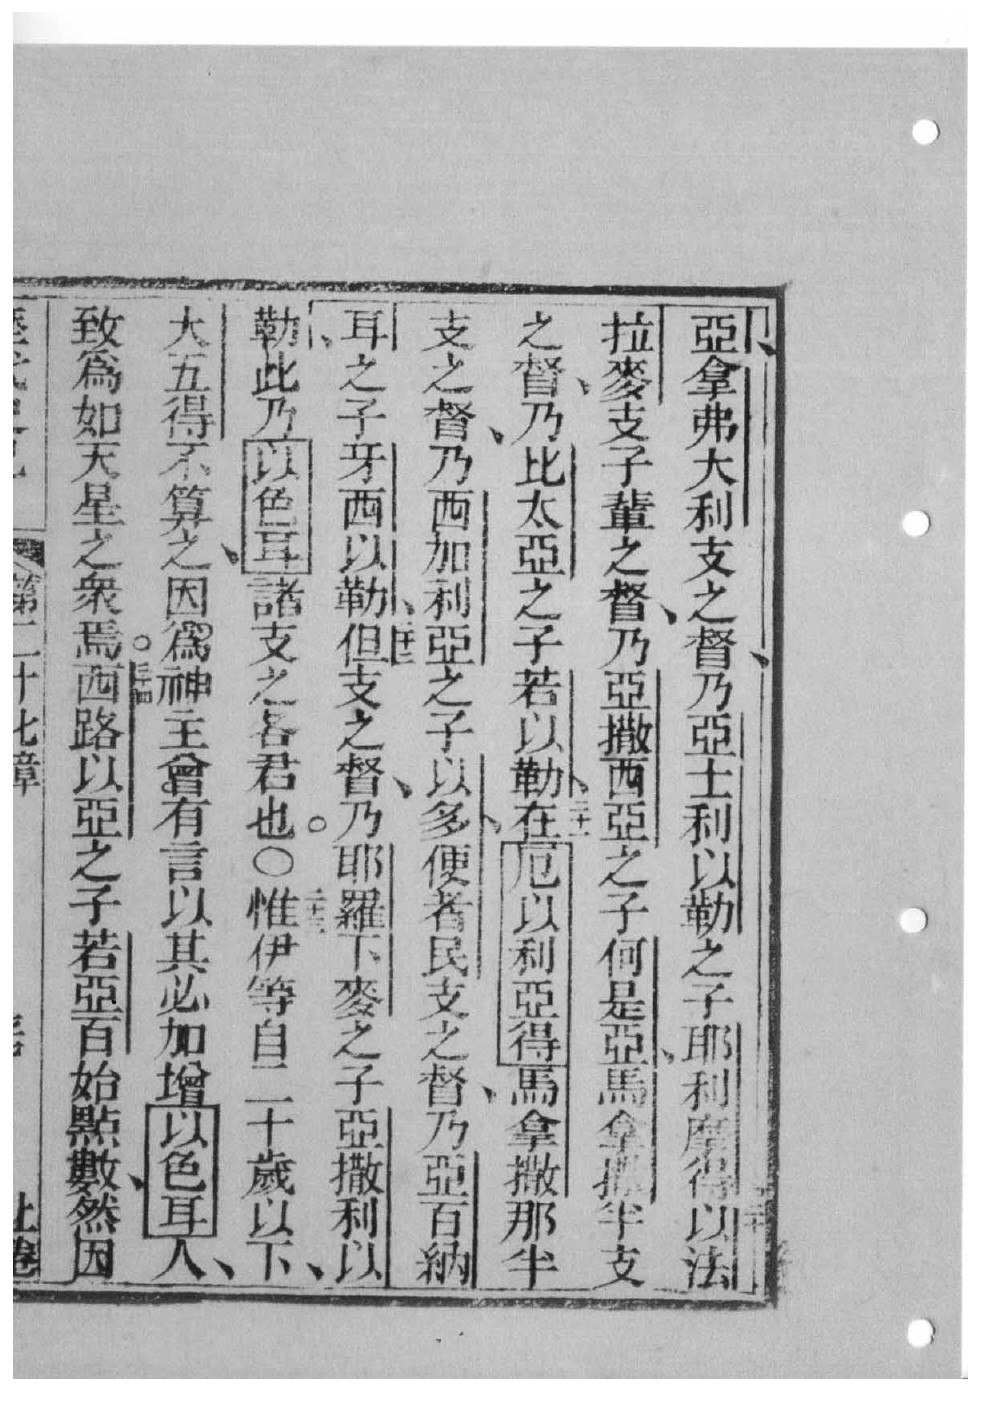 亞拿弗大利支之督、乃亞士利以勒之子耶利摩得二十以法
拉麥支子輩之督、乃亞撒西亞之子何是亞、馬拿撒半支
之督、乃比太亞之子若以勒、二十一在厄以利亞得馬拿撒那半
支之督、乃西加利亞之子以多、便者民支之督、乃亞百納
耳之子牙西以勒、二十二但支之督、乃耶羅下麥之子亞撒利以
勒、此乃以色耳諸支之各君也。○二十三惟伊等自二十歲以下、
大五得不算之、因爲神主曾有言以其必加增以色耳人、
致爲如天星之衆焉。二十四西路以亞之子若亞百始點數、然因
第二十七章 上卷